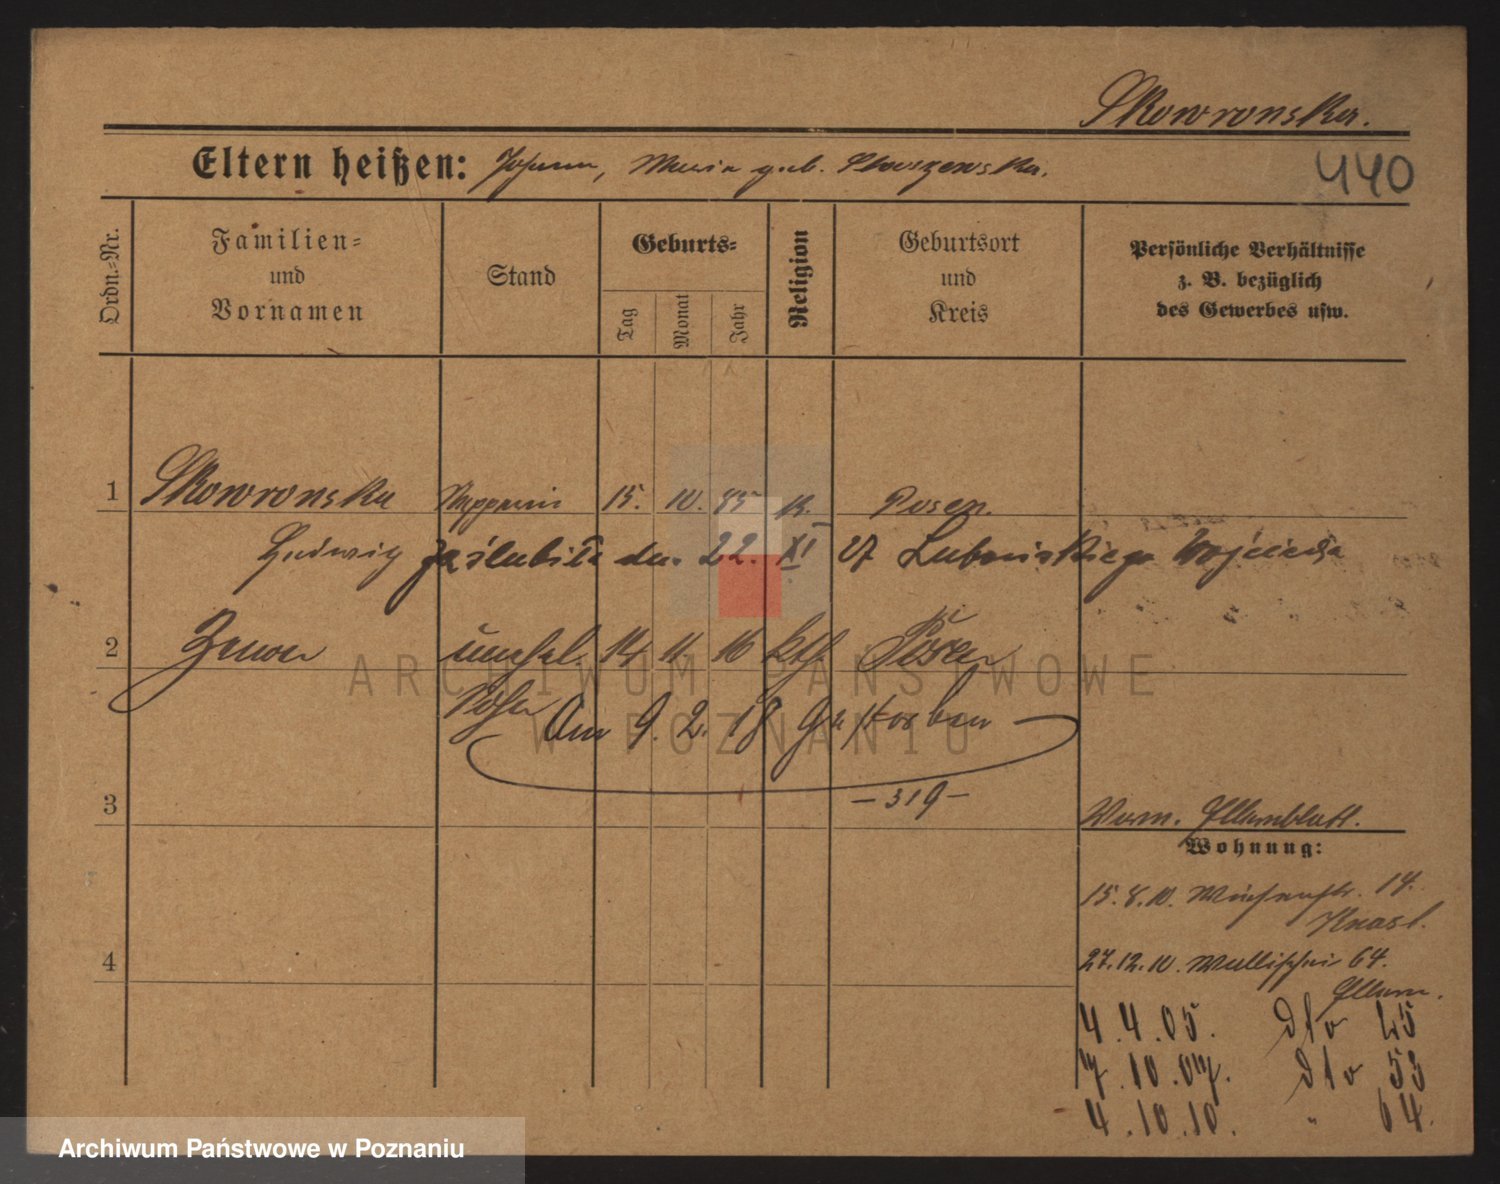 Skowronska.
Eltern heißen: Johann, Maria geb. Staszewska.
440
Ordn.-Nr.
Familien-
und
Vornamen
Stand
Geburts-
Tag
Monat
Jahr
Religion
Geburtsort
und
Kreis
Persönliche Verhältnisse
z. B. bezüglich
des Gewerbes usw.
1 Skowronska 15. 10. 85 k. Posen.
Hedwig zaślubiła dn. 22. XI 27 Wojciecha
2 unehel. 14 11 16 kth Posen
Am 9. 2. 18 gestorben
- 319 -
3
Vorm. Elternblatt.
Wohnung:
15. 8. 10. 14.
4
27. 12. 10. Wallischei 64.
Eltern.
4. 4. 05. dto 45
7. 10. 07. dto 53
4. 10. 10. " 64.
ARCHIWUM PAŃSTWOWE
W POZNANIU
Archiwum Państwowe w Poznaniu